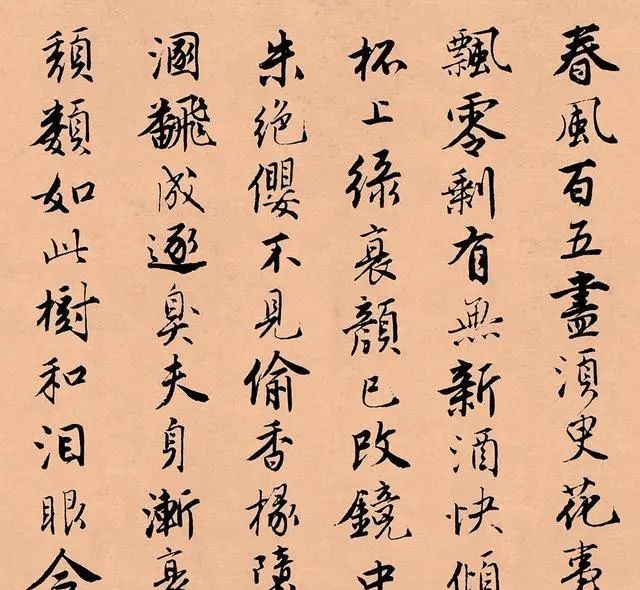 春風百五盡須臾花事
飄零剩有無新酒快傾
杯上綠衰顏已改鏡中
朱絕纓不見偷香椽墮
溷飜成逐臭夫身漸衰
頹類如此樹和泪眼合